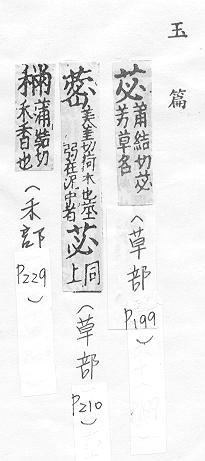 玉篇
苾蒲結切苾芳草名（草部P199）
蔤美筆切荷本也莖弱在泥中者苾同上（草部P210）
蒲結切禾香也（禾部P229）